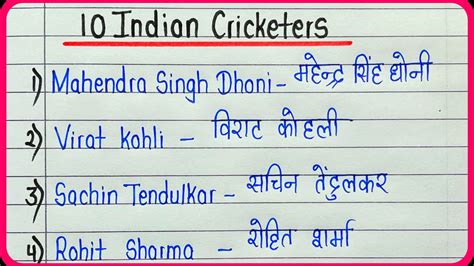 10 Indian Cricketers
1) Mahendra Singh Dhoni - महेन्द्र सिंह धोनी
2) Virat Kohli - विराट कोहली
3) Sachin Tendulkar - सचिन तेंदुलकर
4) Rohit Sharma - रोहित शर्मा